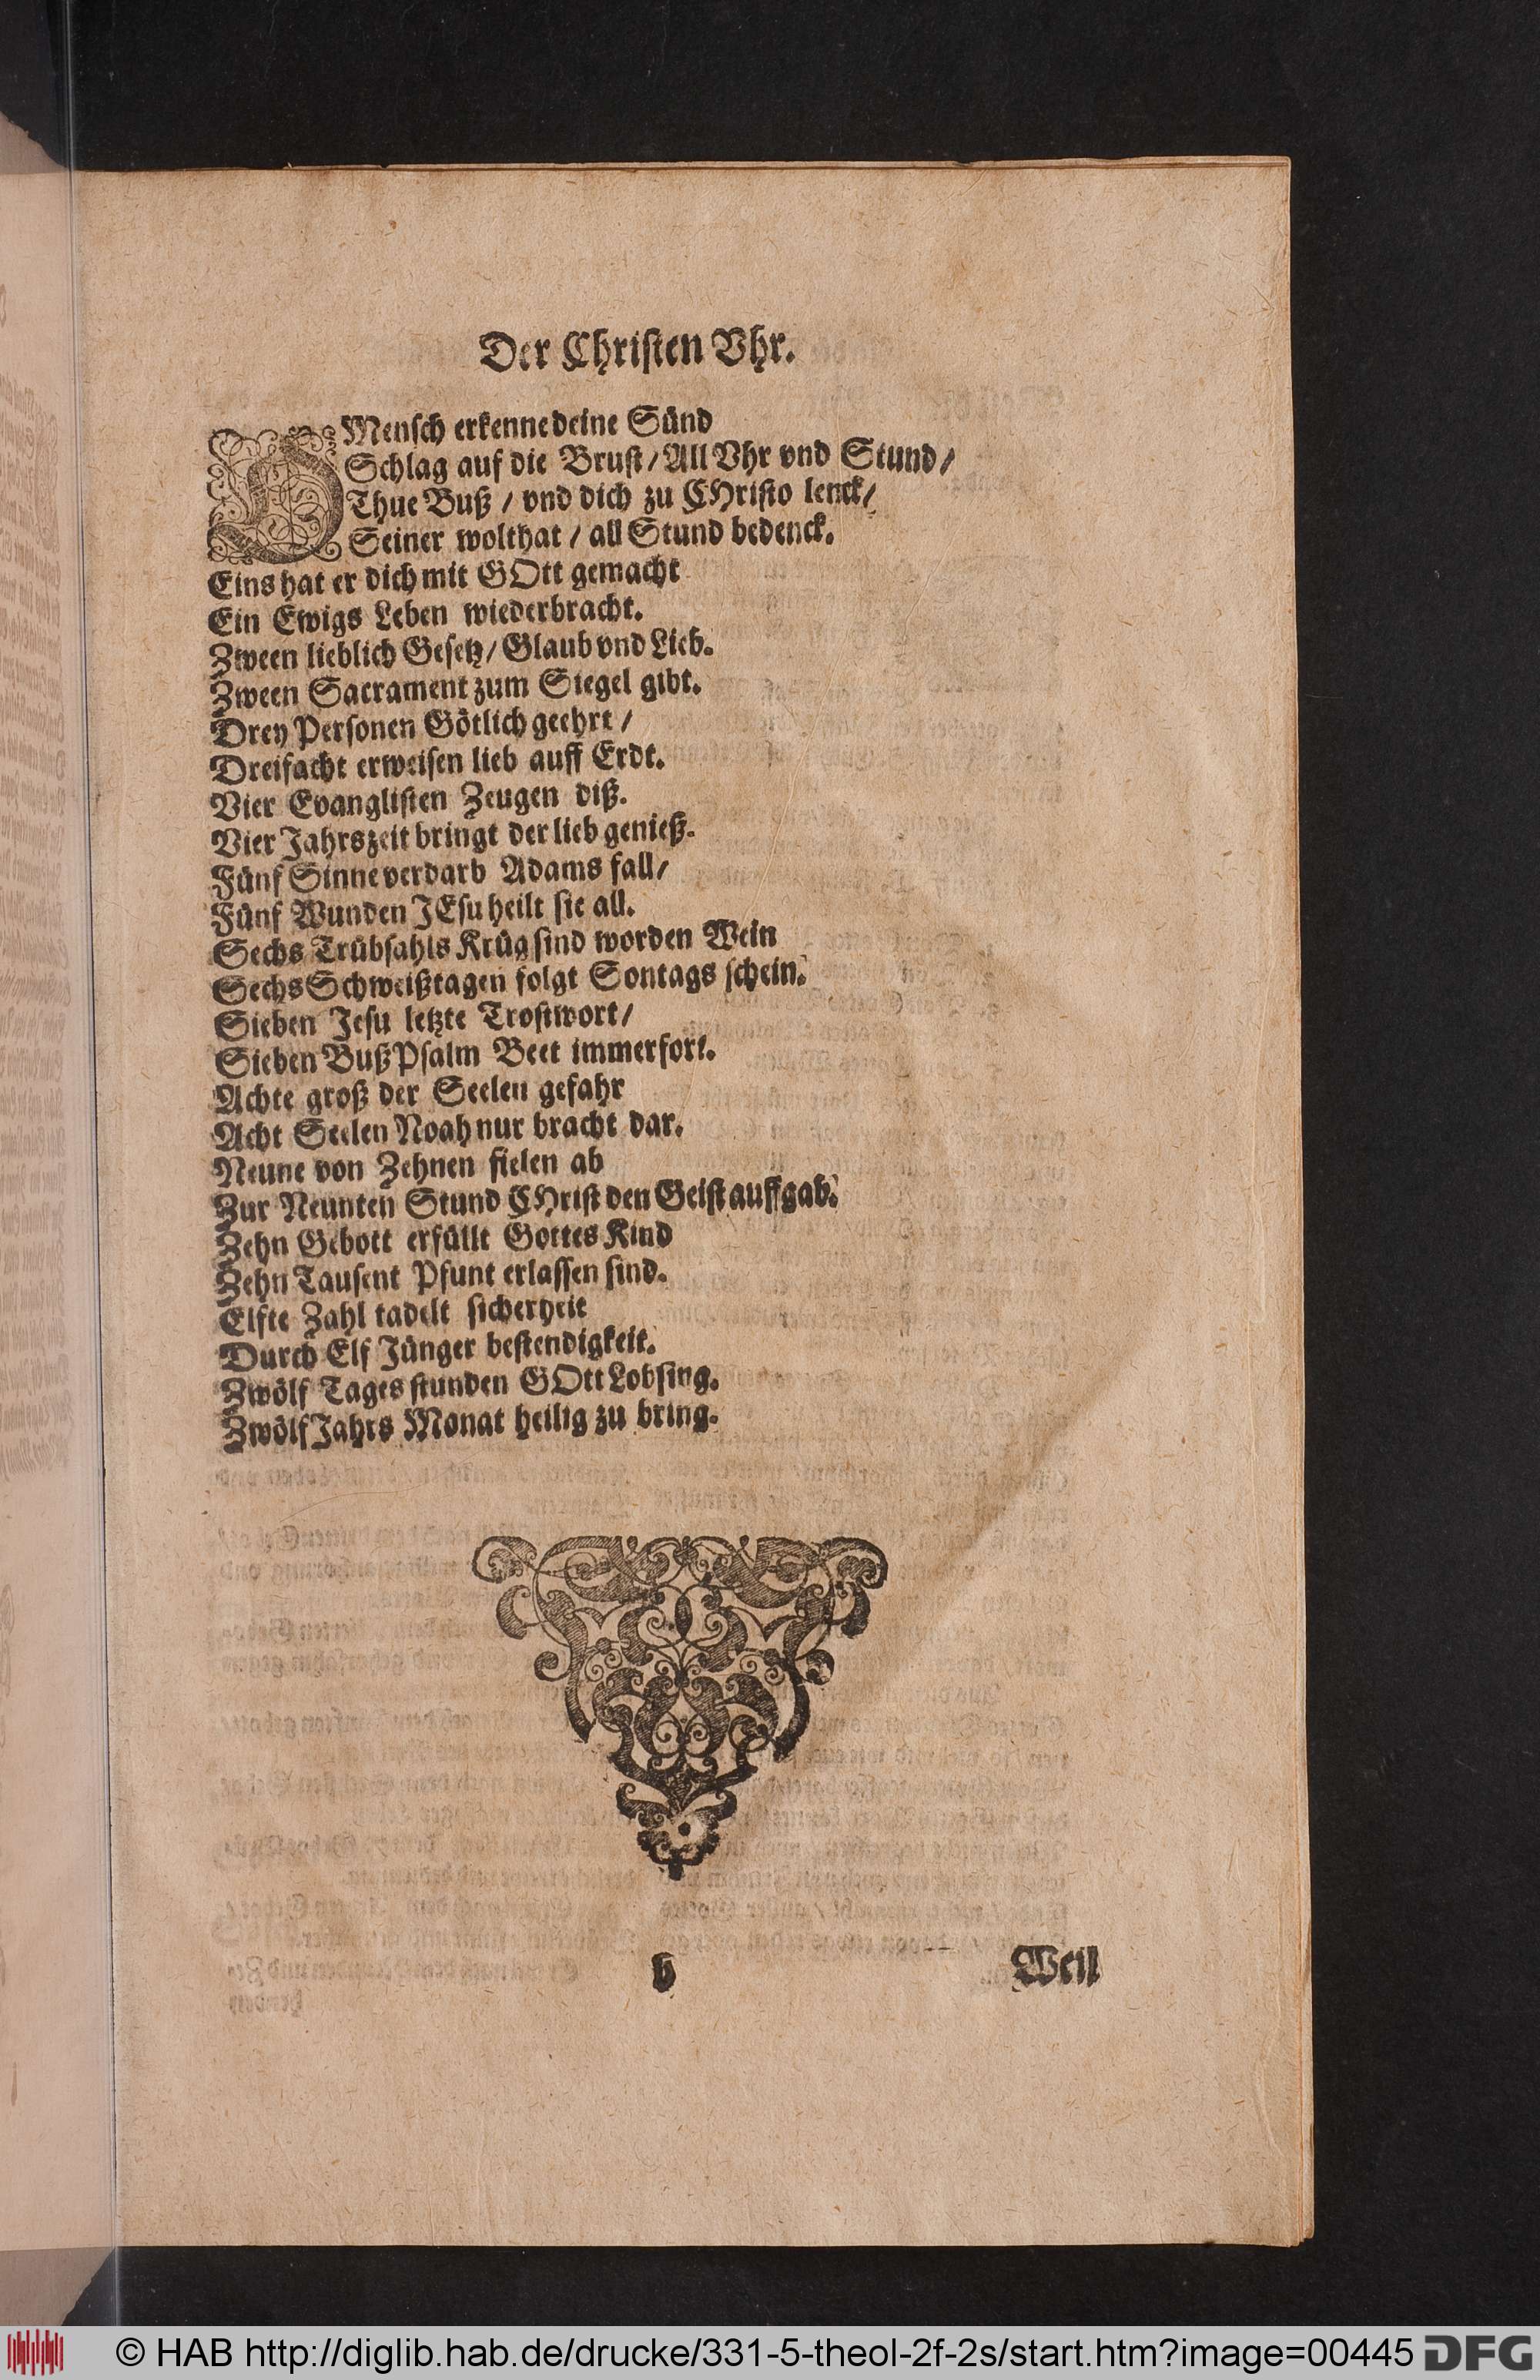 Der Christen Vhr.
O Mensch erkenne deine Sünd
Schlag auf die Brust / All Vhr vnd Stund /
Thue Buß / vnd dich zu CHristo lenck /
Seiner wolthat / all Stund bedenck.
Eins hat er dich mit GOtt gemacht
Ein Ewigs Leben wiederbracht.
Zween lieblich Gesetz / Glaub vnd Lieb.
Zween Sacrament zum Siegel gibt.
Drey Personen Götlich geehrt /
Dreifacht erweisen lieb auff Erdt.
Vier Evanglisten Zeugen diß.
Vier Jahrszeit bringt der lieb genieß.
Fünf Sinne verdarb Adams fall /
Fünf Wunden JEsu heilt sie all.
Sechs Trübsahls Krüg sind worden Wein
Sechs Schweißtagen folgt Sontags schein.
Sieben Jesu letzte Trostwort /
Sieben Buß Psalm Beet immerfort.
Achte groß der Seelen gefahr
Acht Seelen Noah nur bracht dar.
Neune von Zehnen fielen ab
Zur Neunten Stund CHrist den Geist auffgab.
Zehn Gebott erfüllt Gottes Kind
Zehn Tausent Pfunt erlassen sind.
Elfte Zahl tadelt sicherheit
Durch Elf Jünger bestendigkeit.
Zwölf Tages stunden GOtt Lobsing.
Zwölf Jahrs Monat heilig zu bring.
b Weil
© HAB http://diglib.hab.de/drucke/331-5-theol-2f-2s/start.htm?image=00445 DFG